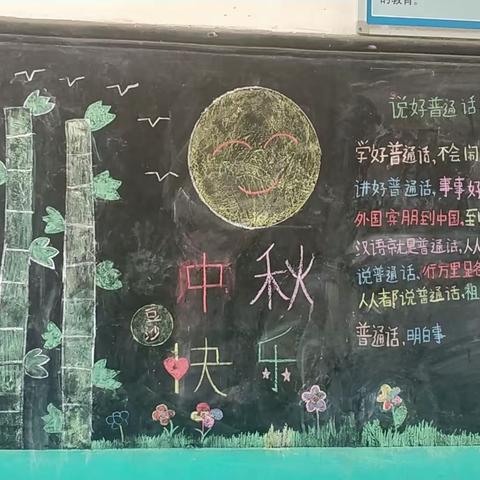 的教育。
说好普通话
学好普通话,不会闹
讲好普通话,事事好
外国宾朋到中国,至
汉语就是普通话,人人
说普通话,行万里
人人都说普通话,祖
普通话,明白事
中秋
豆沙
快乐